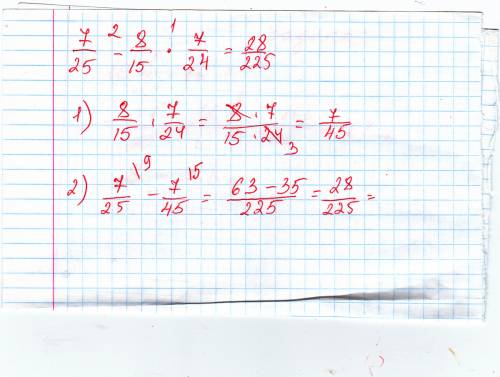 7/25 -² 8/15 ·¹ 7/24 = 28/225
1) 8/15 · 7/24 = 8·7/15·24 3 = 7/45
2) 7/25 \9 - 7/45 \5 = 63-35/225 = 28/225 =